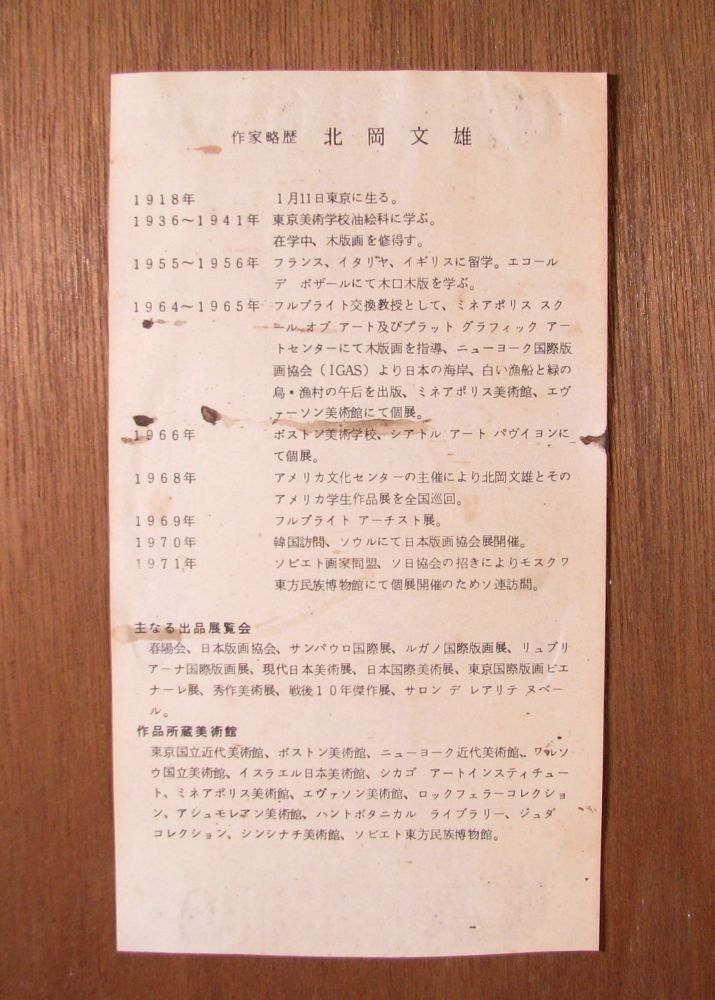 作家略歴 北岡文雄
1918年 1月11日東京に生る。
1936〜1941年 東京美術学校油絵科に学ぶ。
在学中、木版画を修得す。
1955〜1956年 フランス、イタリヤ、イギリスに留学。エコール
デ ボザールにて木口木版を学ぶ。
1964〜1965年 フルブライト交換教授として、ミネアポリス スク
ール オブ アート及びプラット グラフィック アー
トセンターにて木版画を指導、ニューヨーク国際版
画協会(IGAS)より日本の海岸、白い漁船と緑の
島・漁村の午后を出版、ミネアポリス美術館、エヴ
ァーソン美術館にて個展。
1966年 ボストン美術学校、シアトル アート パヴイヨンに
て個展。
1968年 アメリカ文化センターの主催により北岡文雄とその
アメリカ学生作品展を全国巡回。
1969年 フルブライト アーチスト展。
1970年 韓国訪問、ソウルにて日本版画協会展開催。
1971年 ソビエト画家同盟、ソ日協会の招きによりモスクワ
東方民族博物館にて個展開催のためソ連訪問。
主なる出品展覧会
春陽会、日本版画協会、サンパウロ国際展、ルガノ国際版画展、リュブリ
アーナ国際版画展、現代日本美術展、日本国際美術展、東京国際版画ビエ
ナーレ展、秀作美術展、戦後10年傑作展、サロン デ レアリテ ヌベー
ル。
作品所蔵美術館
東京国立近代美術館、ボストン美術館、ニューヨーク近代美術館、ワルソ
ウ国立美術館、イスラエル日本美術館、シカゴ アートインスティチュー
ト、ミネアポリス美術館、エヴァソン美術館、ロックフェラーコレクショ
ン、アシュモレアン美術館、ハントボタニカル ライブラリー、ジュダ
コレクション、シンシナチ美術館、ソビエト東方民族博物館。